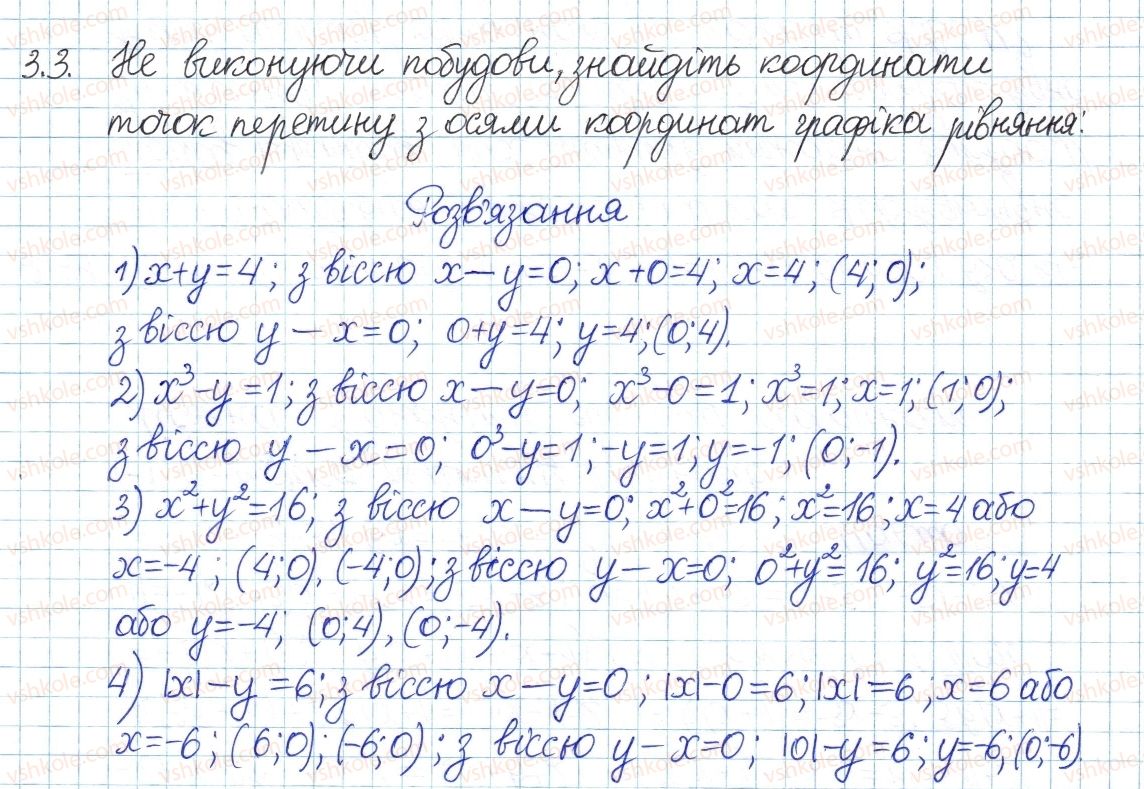 3.3. Не виконуючи побудови, знайдіть координати
точок перетину з осями координат графіка рівняння:
Розв'язання
1) x+y=4; з віссю x — y=0; x+0=4; x=4; (4; 0);
з віссю y — x=0; 0+y=4; y=4; (0; 4).
2) x³-y=1; з віссю x — y=0; x³-0=1; x³=1; x=1; (1; 0);
з віссю y — x=0; 0³-y=1; -y=1; y=-1; (0; -1).
3) x²+y²=16; з віссю x — y=0; x²+0²=16; x²=16; x=4 або
x=-4; (4; 0), (-4; 0); з віссю y — x=0; 0²+y²=16; y²=16; y=4
або y=-4; (0; 4), (0; -4).
4) |x|-y=6; з віссю x — y=0; |x|-0=6; |x|=6; x=6 або
x=-6; (6; 0); (-6; 0); з віссю y — x=0; |0|-y=6; y=-6; (0; -6).
vshkole.com